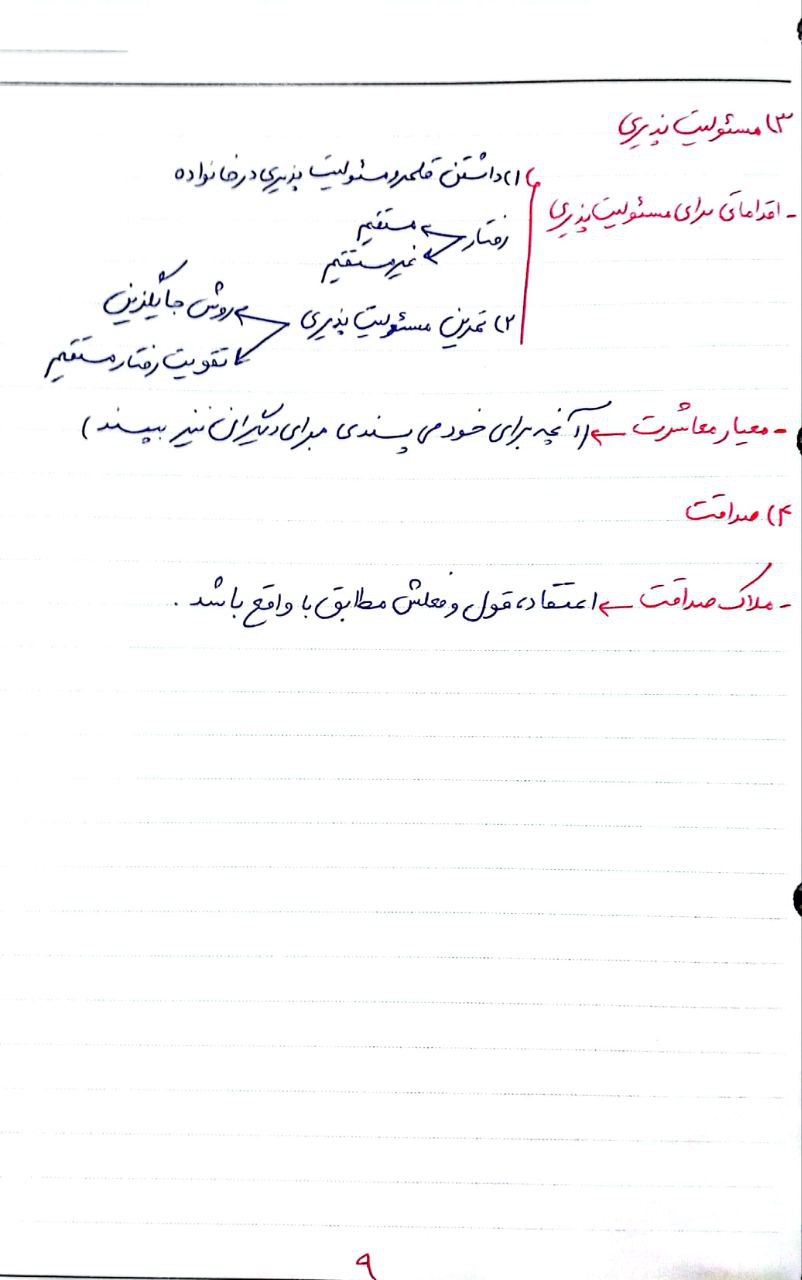 ۳) مسئولیت پذیری
- اقداماتی برای مسئولیت پذیری
۱) داشتن قلمرو مسئولیت پذیری در خانواده
رفتار ← مستقیم
← غیرمستقیم
۲) تمرین مسئولیت پذیری ← روش جایگزین
← تقویت رفتار مستقیم
- معیار معاشرت ← (آنچه برای خود می پسندی برای دیگران نیز بپسند)
۴) صداقت
- ملاک صداقت ← اعتقاد، قول و فعلش مطابق با واقع باشد.
۹